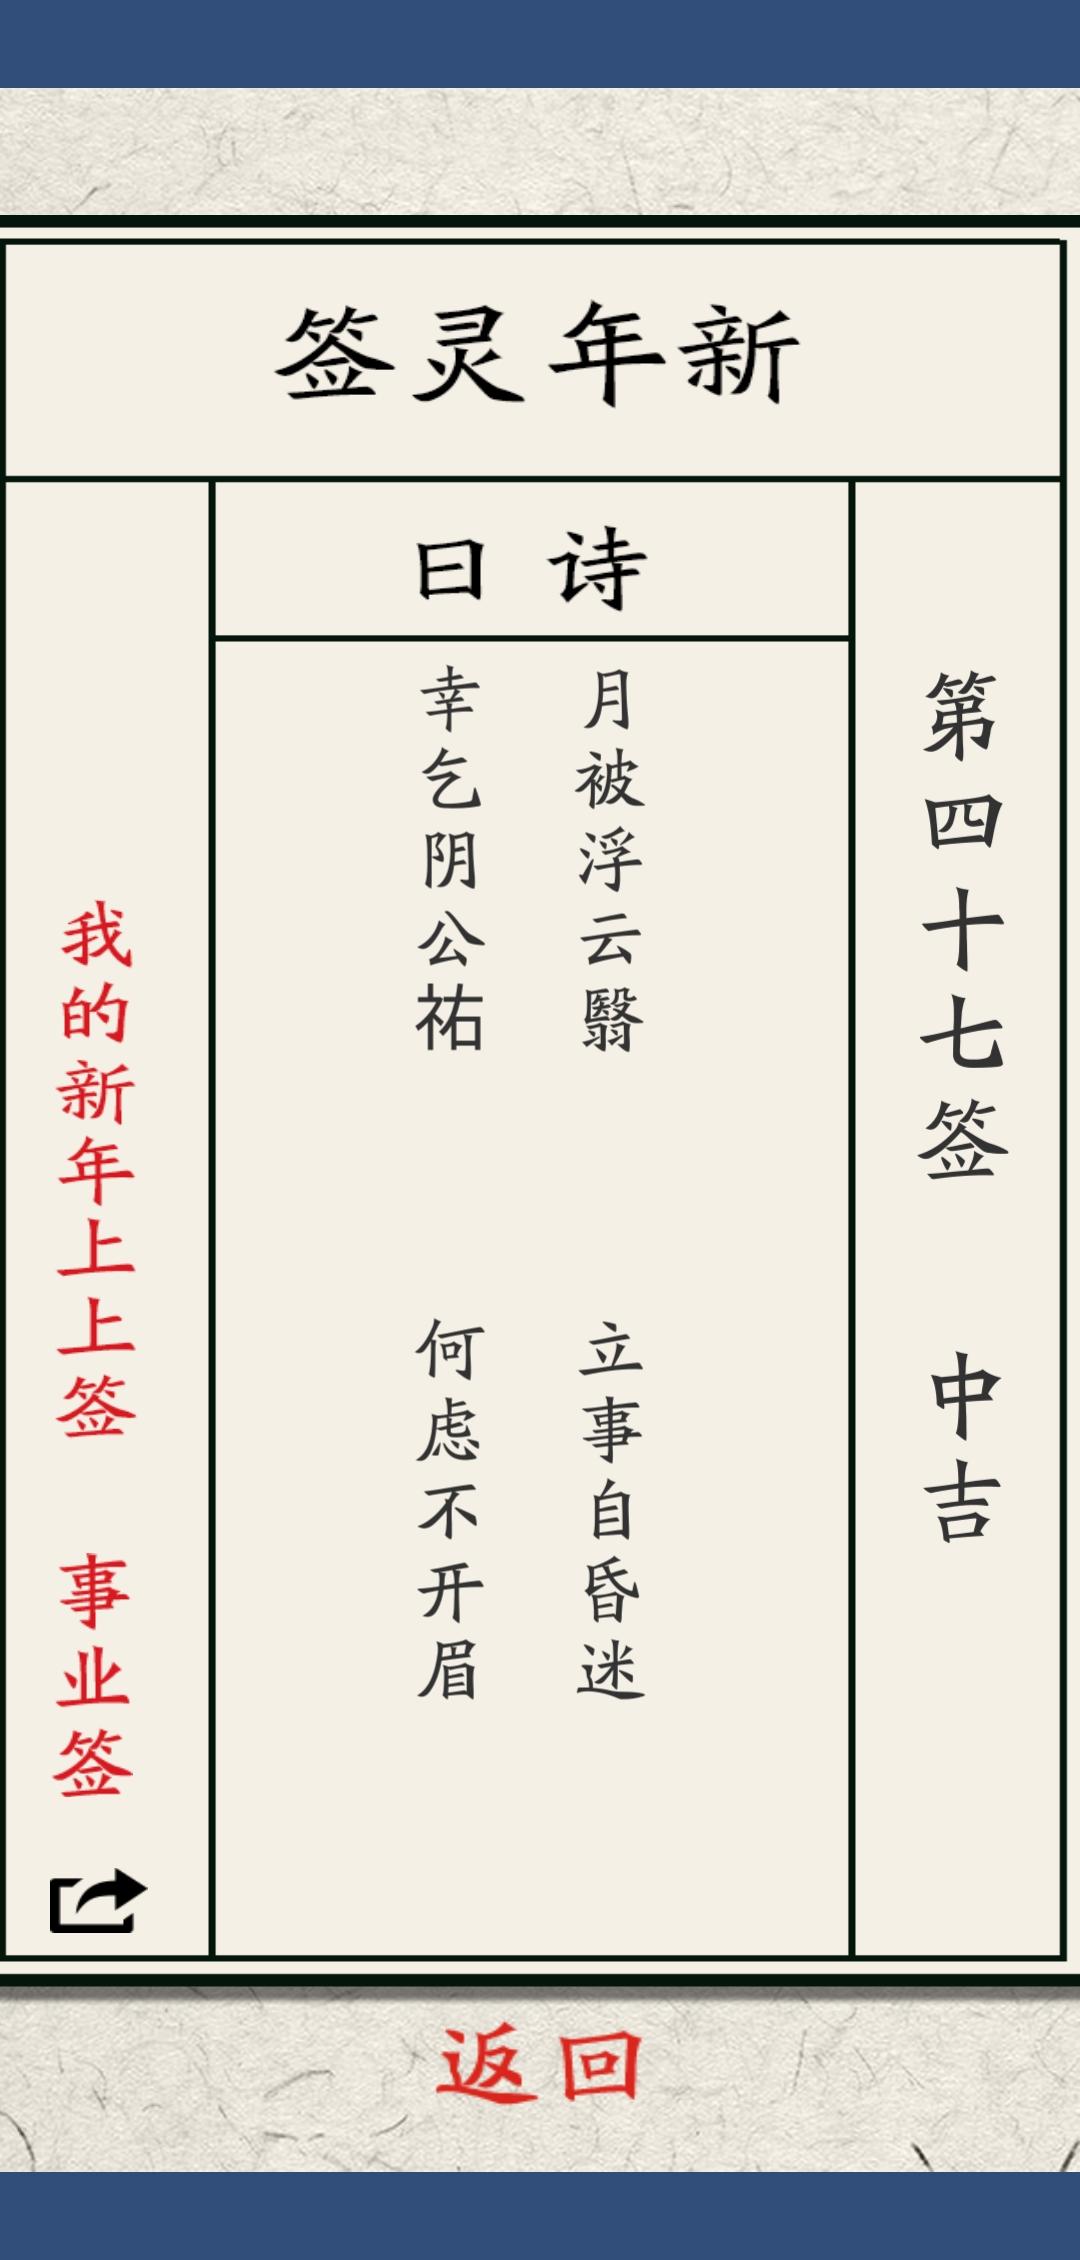 新年灵签
第四十七签 中吉
诗曰
月被浮云翳 立事自昏迷
幸乞阴公祐 何虑不开眉
我的新年上上签 事业签
返回